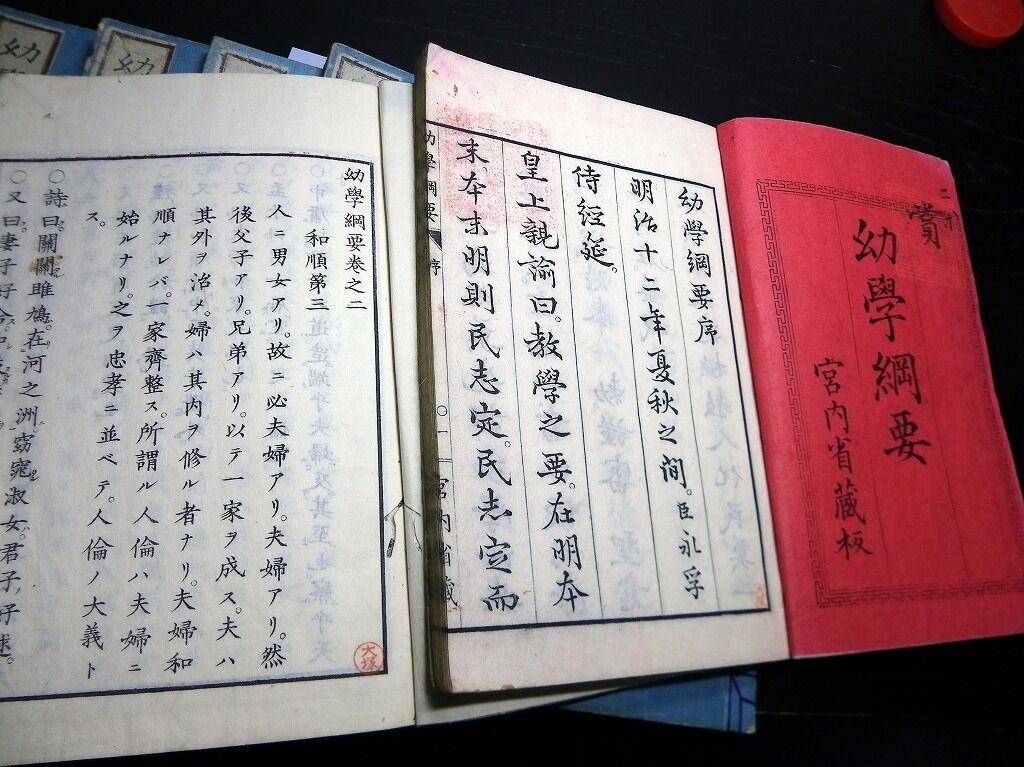 賞
幼學綱要
宮内省藏板
幼學綱要序
明治十二年夏秋之間。臣永孚
侍經筵。
皇上親諭曰。教學之要。在明本
末。本末明則民志定。民志定而
幼學綱要
序
宮内省藏
幼學綱要卷之二
和順第三
人ニ男女アリ。故ニ必夫婦アリ。夫婦アリ。然
後父子アリ。兄弟アリ。以テ一家ヲ成ス。夫ハ
其外ヲ治メ。婦ハ其内ヲ修ル者ナリ。夫婦和
順ナレバ。一家齊整ス。所謂ル人倫ハ夫婦ニ
始ルナリ。之ヲ忠孝ニ並ベテ。人倫ノ大義ト
ス。
○詩曰。關關雎鳩。在河之洲。窈窕淑女。君子好逑。
○又曰。妻子好合。
大塚
幼
幼